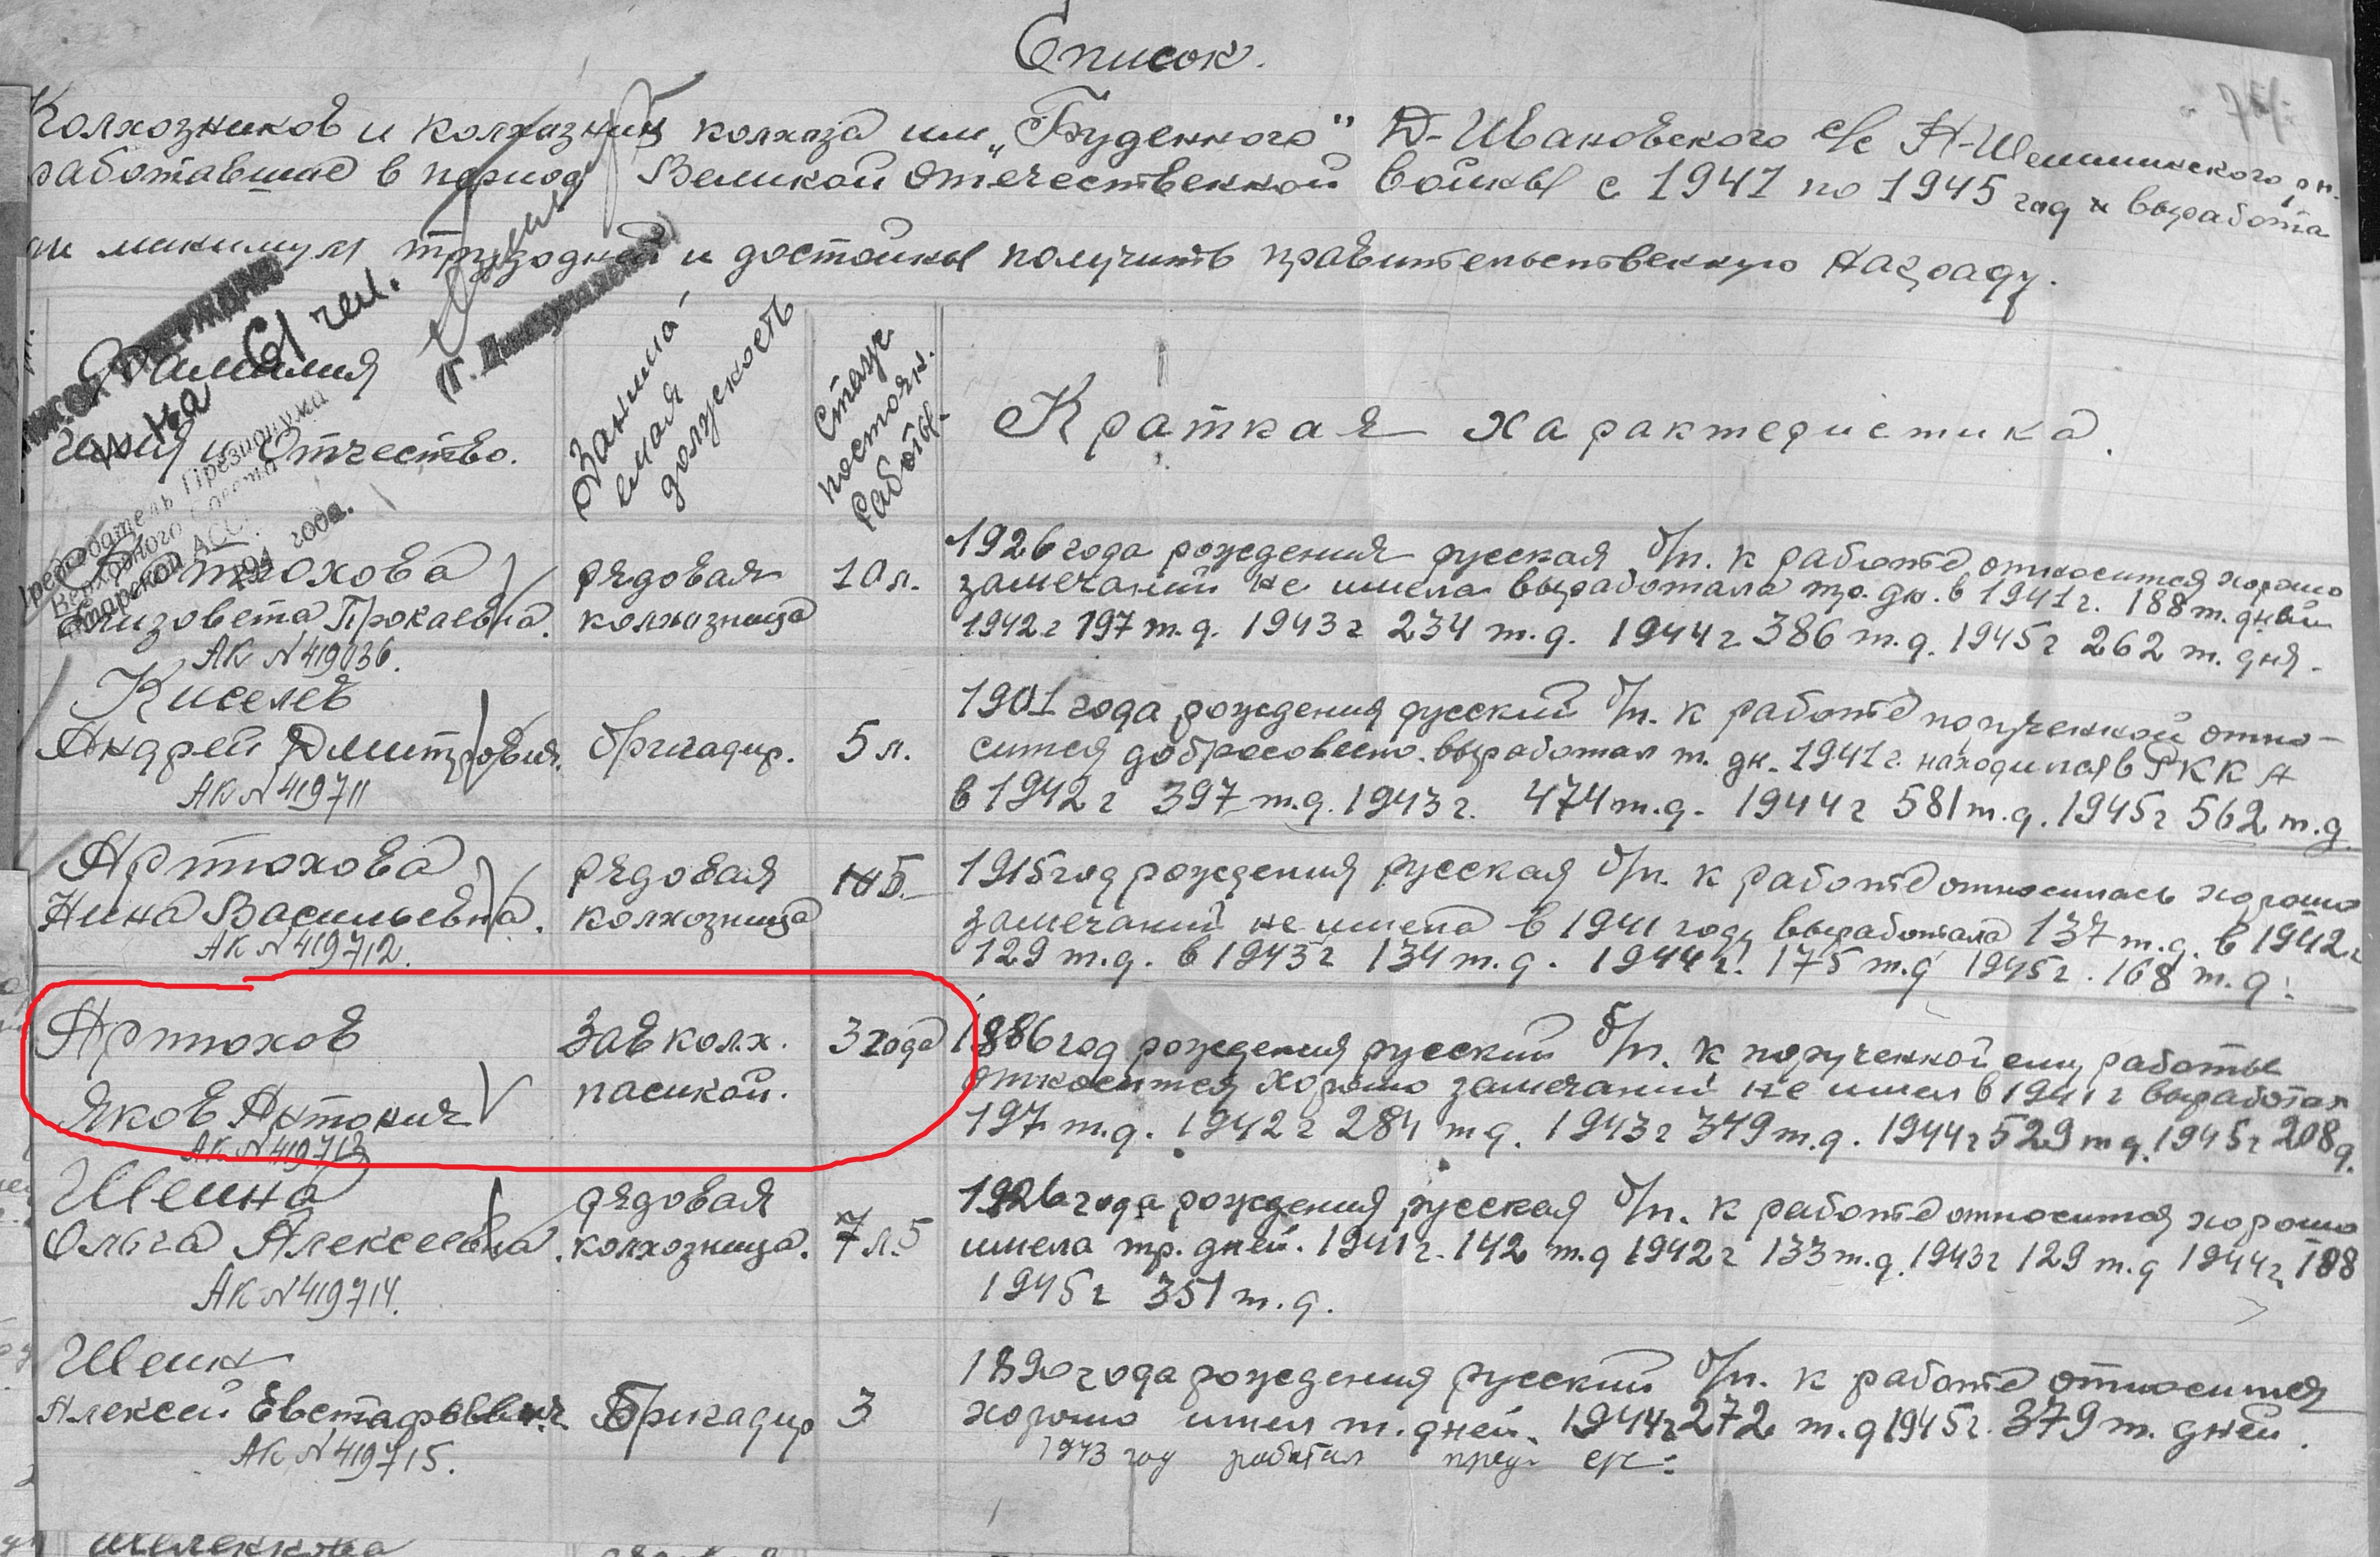 Список.
Колхозников и колхозниц колхоза им „Буденного" Д-Ивановского с/с Н-Шешминского р-н.
работавшие в период Великой Отечественной войны с 1941 по 1945 год и выработа
ли минимум трудодней и достойны получить правительственную награду.
на 61 чел.
Председатель Президиума
Верховного Совета
Татарской АССР
194 года.
Фамилия
Имя и Отчество.
Занима-
емая
должность
Стаж
постоян.
работы.
Краткая характеристика.
Артюхова
Елизовета Прокаевна.
АК N 419036.
рядовая
колхозница
10 л.
1926 года рождения русская б/п. к работе относится хорошо
замечаний не имела выработала тр. дн. в 1941 г. 188 т. дней
1942 г 197 т.д. 1943 г 234 т.д. 1944 г 386 т.д. 1945 г 262 т. дня.
Киселев
Андрей Дмитрович.
АК N 419711
бригадир.
5 л.
1901 года рождения русский б/п. к работе порученной отно-
сится добросовесно. выработал т. дн. 1941 г. находился в РККА
в 1942 г 397 т.д. 1943 г. 474 т.д. 1944 г 581 т.д. 1945 г 562 т.д
Артюхова
Нина Васильевна.
АК N 419712.
рядовая
колхозница
1915 год рождения русская б/п. к работе относилась хорошо
замечаний не имела в 1941 году выработала 137 т.д. в 1942 г
129 т.д. в 1943 г 134 т.д. 1944 г. 175 т.д 1945 г. 168 т.д.
Артюхов
Яков Антонич
АК N 419713
Зав колх.
пасикой.
3 года
1886 год рождения русский б/п. к порученной ему работы
относится хорошо замечаний не имел в 1941 г выработал
197 т.д. 1942 г 284 т д. 1943 г 349 т.д. 1944 г 529 т д. 1945 г 208 д.
Шеина
Ольга Алексеевна.
АК N 419714.
рядовая
колхозница.
7 л. 5
1926 года рождения русская б/п. к работе относится хорошо
имела тр. дней. 1941 г. 142 т.д 1942 г 133 т.д. 1943 г 129 т.д 1944 г. 188
1945 г 351 т.д.
Шеин
Алексей Евстафьевич
АК N 419715.
Бригадир
3
1890 года рождения русский б/п. к работе относится
хорошо имел т. дней. 1944 г 272 т.д 1945 г. 379 т. дней.
1943 год работал пред.